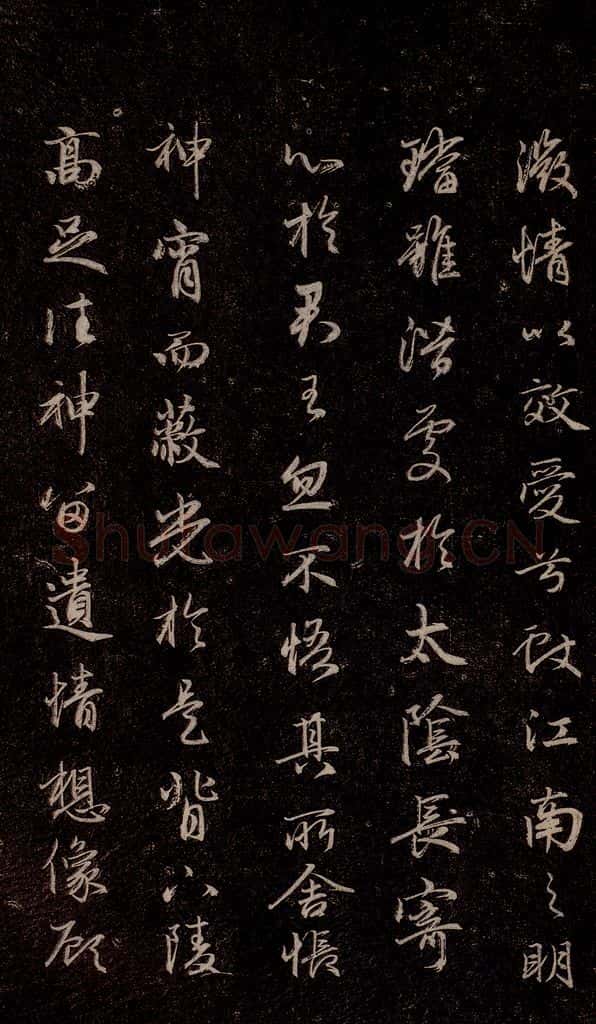 微情以效愛兮獻江南之明
璫雖潛處於太陰長寄
心於君王忽不悟其所舍悵
神宵而蔽光於是背下陵
高足往神留遺情想像顧
Shufawang.CN